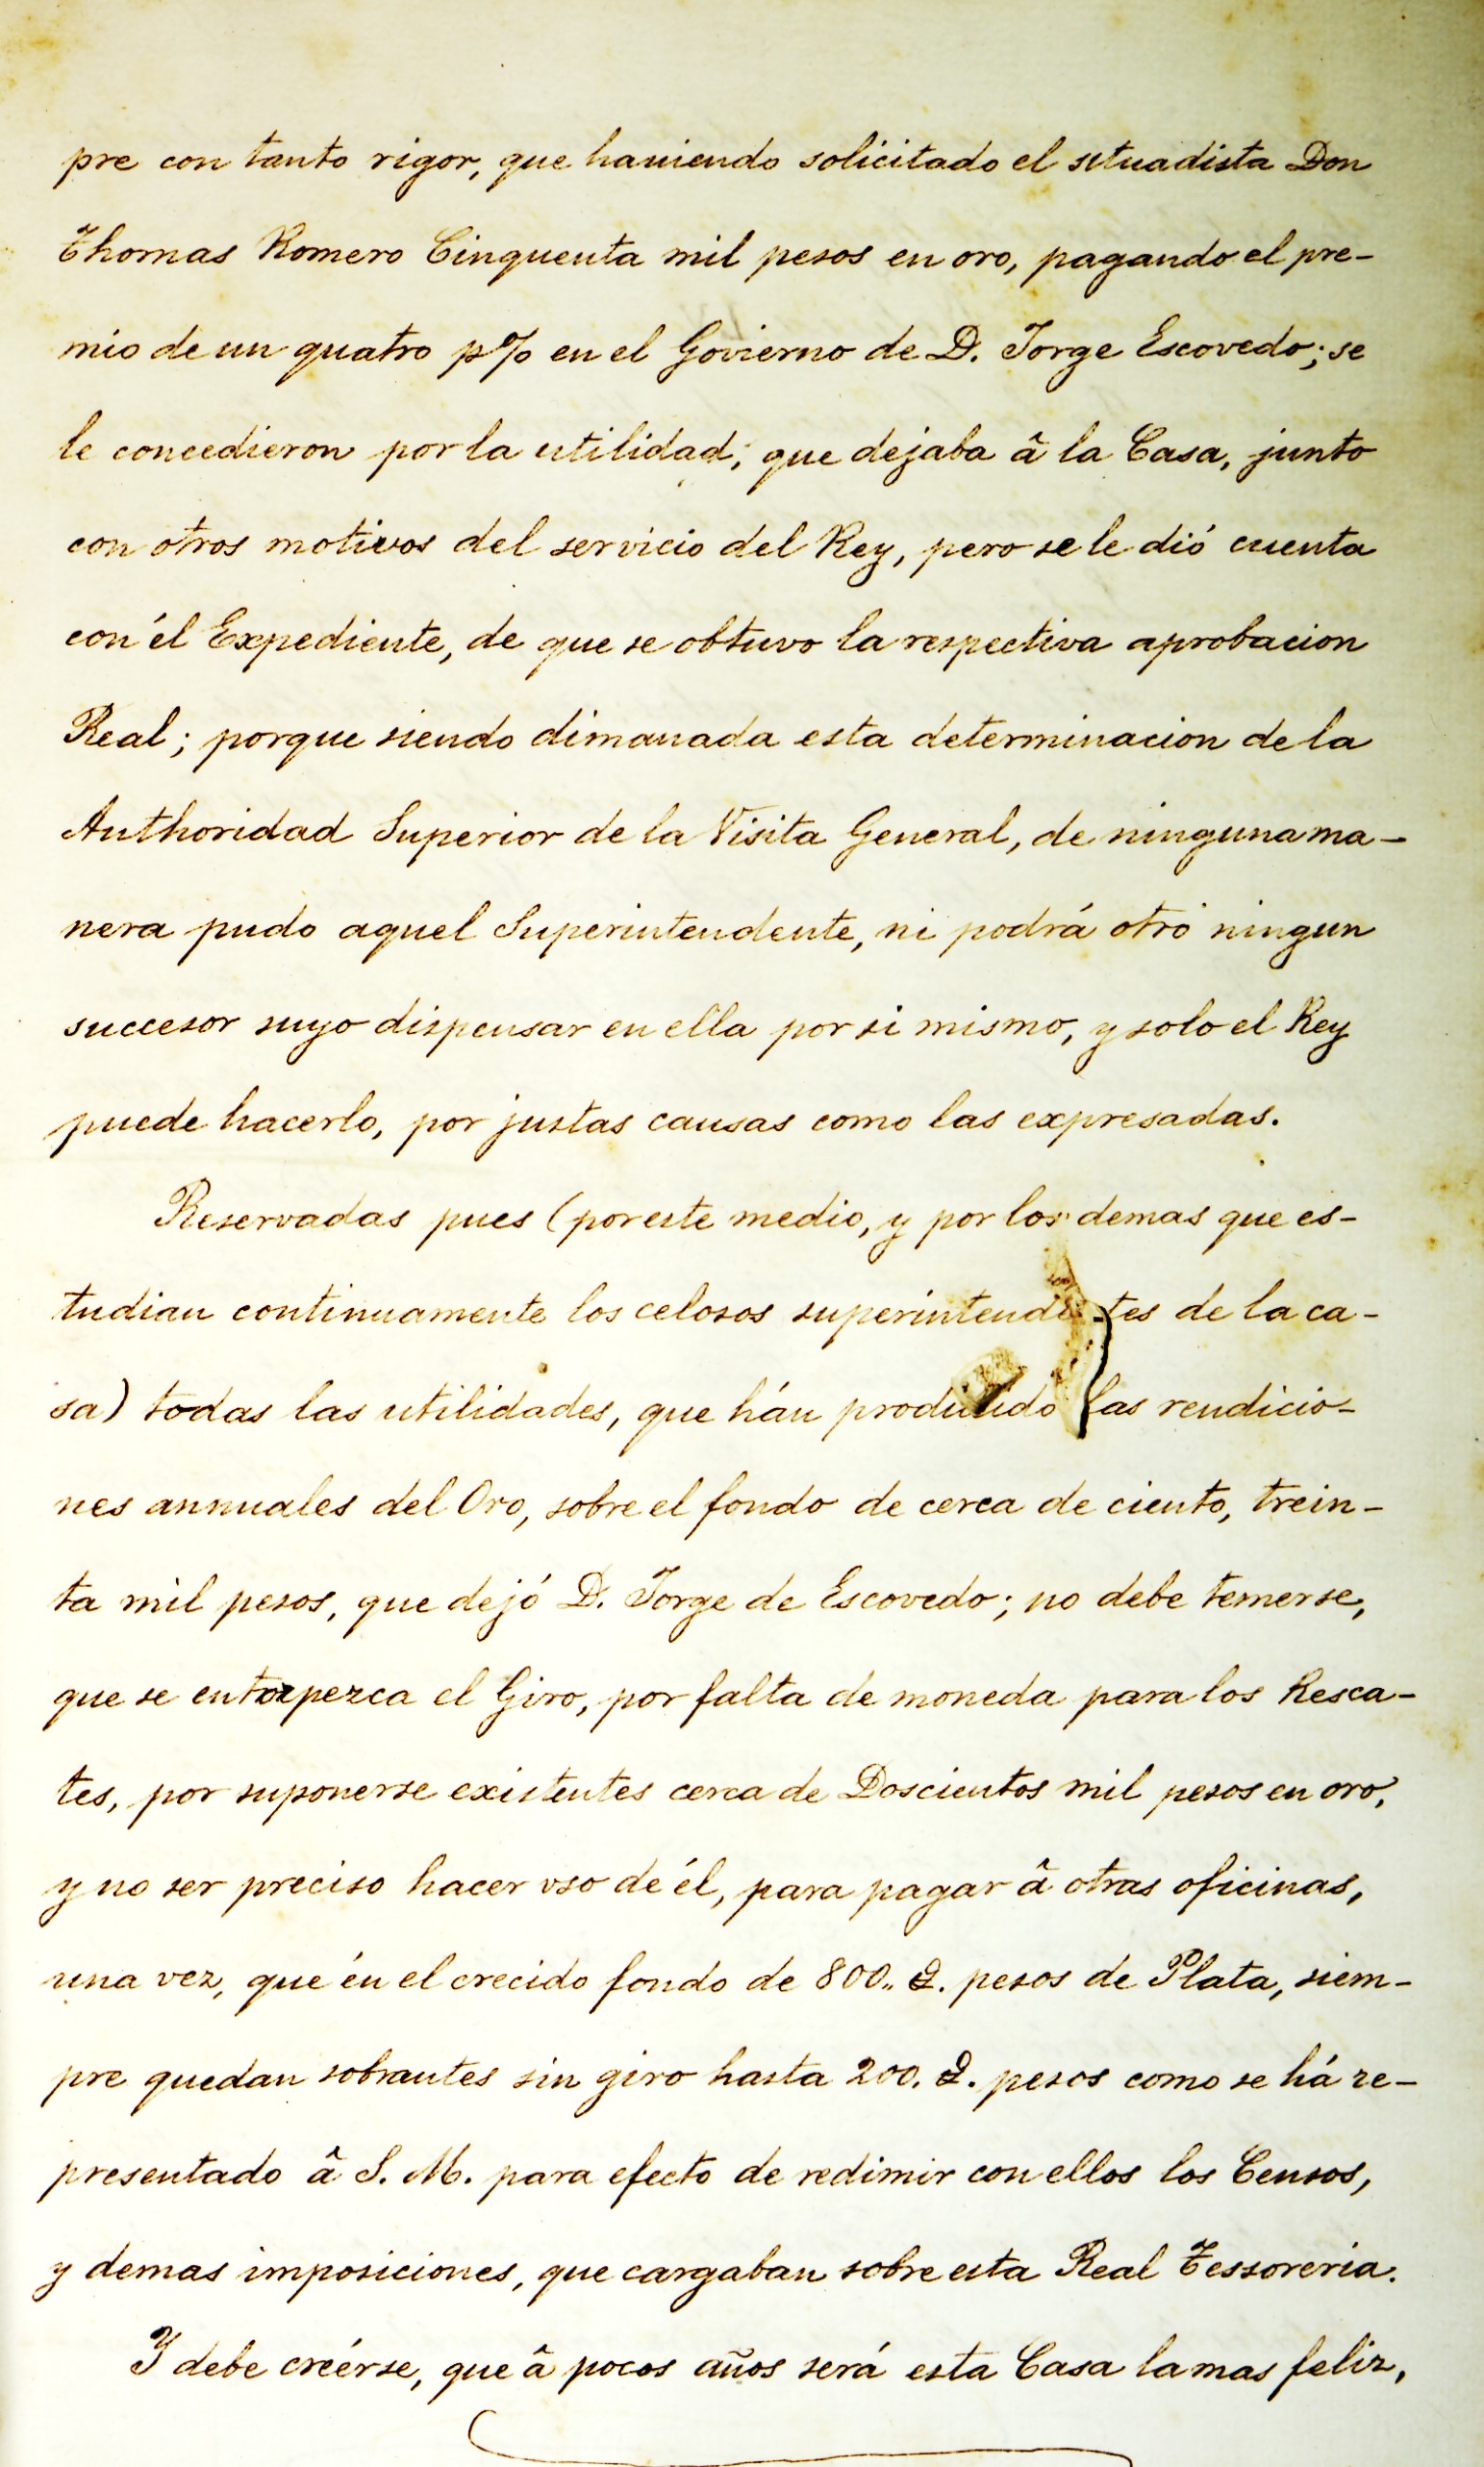 pre con tanto rigor, que haviendo solicitado el situadista Don
Thomas Romero Cinquenta mil pesos en oro, pagando el pre-
mio de un quatro p% en el Govierno de D. Jorge Escovedo; se
le concedieron por la utilidad; que dejaba â la Casa, junto
con otros motivos del servicio del Rey, pero se le dió cuenta
con él Expediente, de que se obtuvo la respectiva aprobacion
Real; porque siendo dimanada esta determinacion de la
Authoridad Superior de la Visita General, de ninguna ma-
nera pudo aquel Superintendente, ni podrá otro ningun
succesor suyo dispensar en ella por si mismo, y solo el Rey
puede hacerlo, por justas causas como las expresadas.
Reservadas pues (por este medio, y por los demas que es-
tudian continuamente los celosos superintendentes de la ca-
sa) todas las utilidades, que hán producido las rendicio-
nes annuales del Oro, sobre el fondo de cerca de ciento, trein-
ta mil pesos, que dejó D. Jorge de Escovedo; no debe temerse,
que se entorpezca el Giro, por falta de moneda para los Resca-
tes, por suponerse existentes cerca de Doscientos mil pesos en oro,
y no ser preciso hacer vso de él, para pagar â otras oficinas,
una vez, que én el crecido fondo de 800.. D. pesos de Plata, siem-
pre quedan sobrantes sin giro hasta 200. D. pesos como se há re-
presentado â S. M. para efecto de redimir con ellos los Censos,
y demas imposiciones, que cargaban sobre esta Real Tessoreria.
Y debe creérse, que â pocos años será esta Casa la mas feliz,